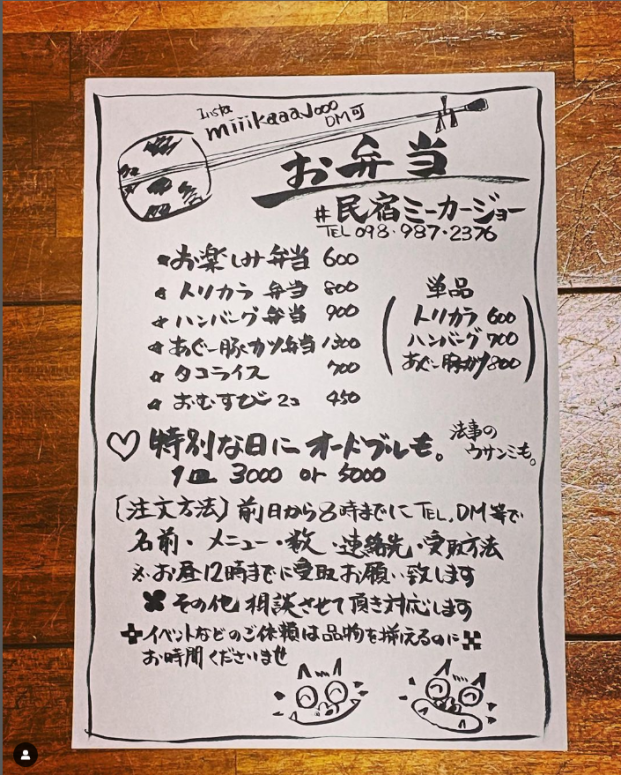 Insta
miiikaaaJooo
DM可
お弁当
#民宿ミーカージョー
TEL 098・987・2376
☆お楽しみ弁当 600
☆トリカラ弁当 800
☆ハンバーグ弁当 900
☆あぐー豚カツ弁当 1300
☆タコライス 700
☆おむすび 2コ 450
単品
トリカラ 600
ハンバーグ 700
あぐー豚カツ 800
♡特別な日にオードブルも。
法事の
ウサンミも。
1皿 3000 or 5000
〔注文方法〕前日から8時までにTEL,DM等で
名前・メニュー・数・連絡先・受取方法
※お昼12時までに受取お願い致します
その他相談させて頂き対応します
イベントなどのご依頼は品物を揃えるのに
お時間くださいませ